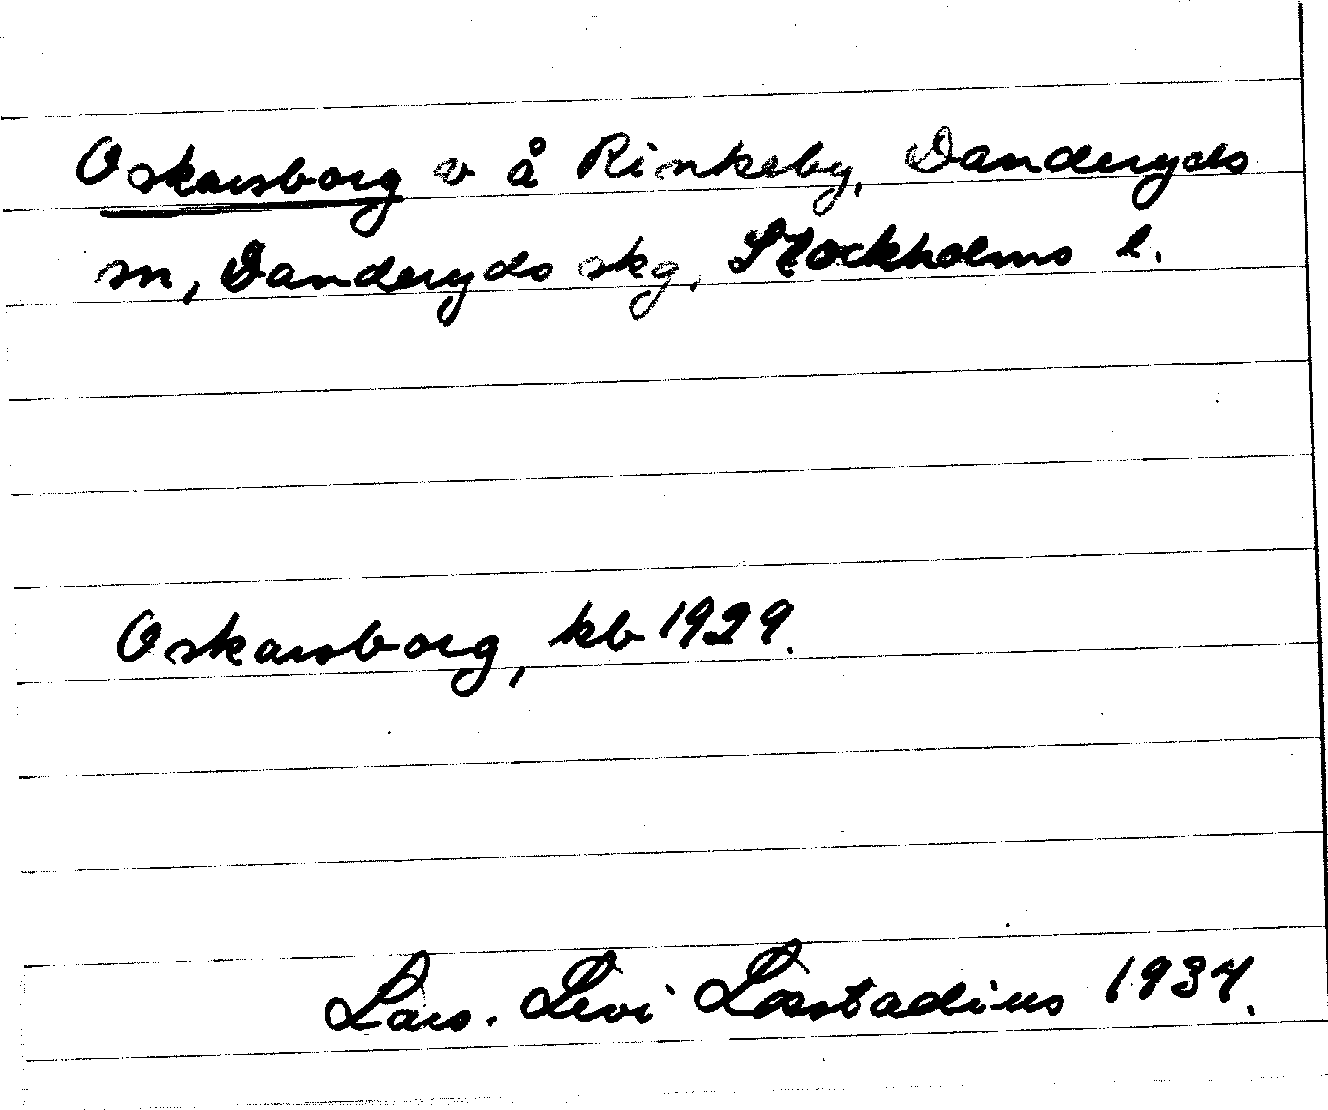 Oskarsborg v å Rinkeby, Danderyds
sn, Danderyds skg, Stockholms l.
Oskarsborg, kb 1929.
Lars. Levi Læstadius 1934.